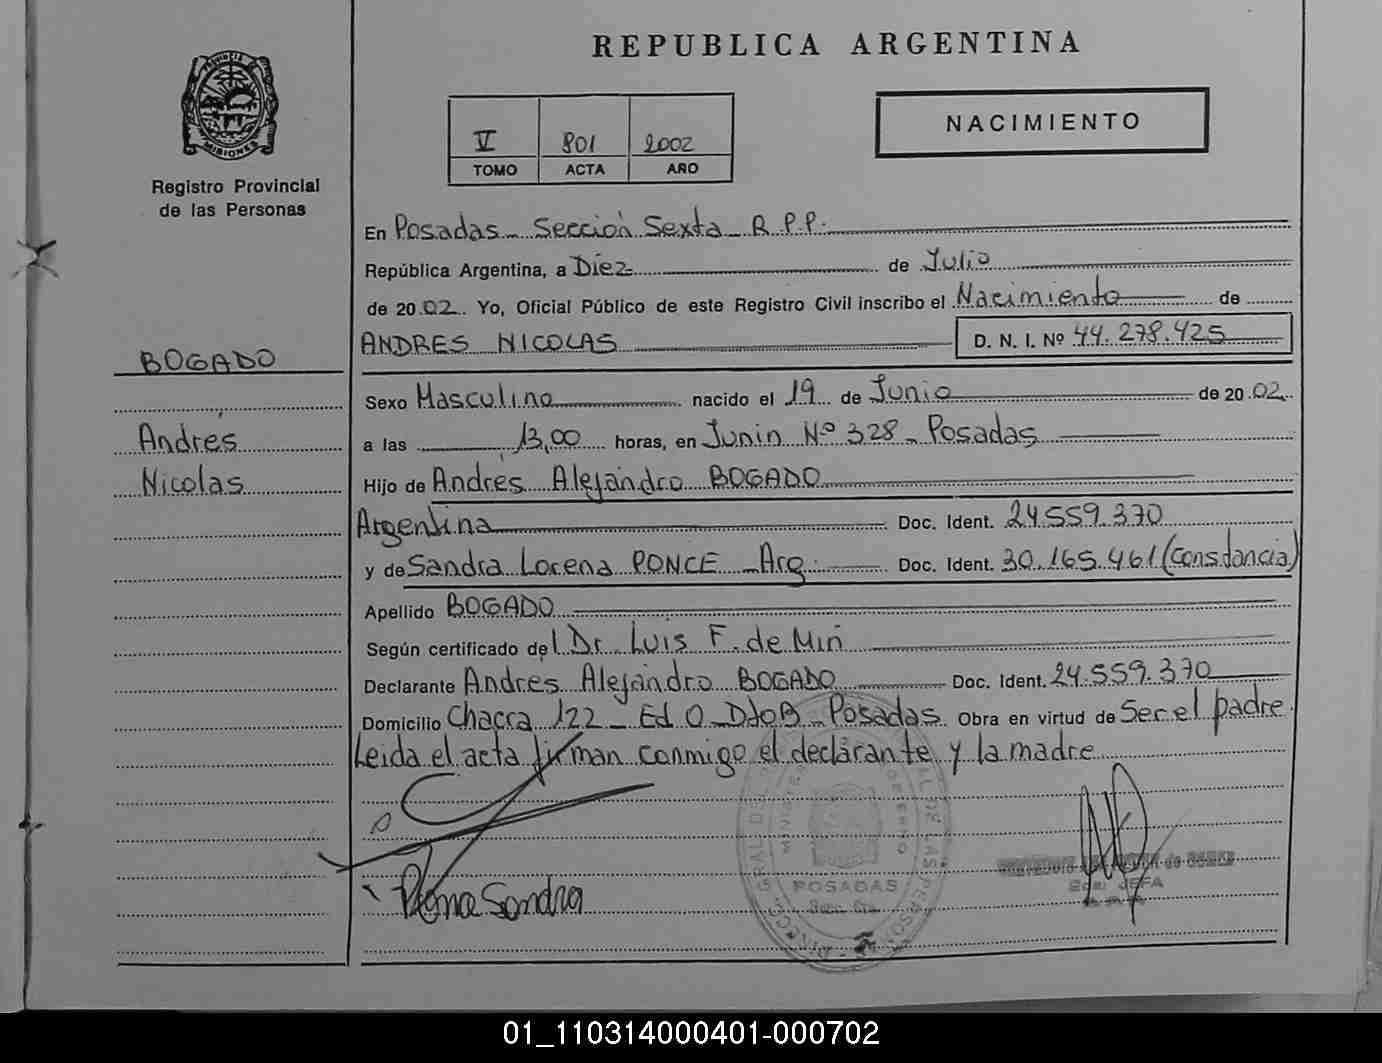 REPUBLICA ARGENTINA
PROVINCIA DE
MISIONES
Registro Provincial
de las Personas
V 801 2002
TOMO ACTA AÑO
NACIMIENTO
En Posadas - Sección Sexta - R.P.P.
República Argentina, a Diez de Julio
de 2002. Yo, Oficial Público de este Registro Civil inscribo el Nacimiento de
ANDRES NICOLAS D. N. I. Nº 44.278.425
BOGADO
Andrés
Nicolas
Sexo Masculino nacido el 19 de Junio de 2002
a las 13,00 horas, en Junin Nº 328 - Posadas
Hijo de Andrés Alejandro BOGADO
Argentina Doc. Ident. 24.559.370
y de Sandra Lorena PONCE - Arg. Doc. Ident. 30.165.461 (Constancia)
Apellido BOGADO
Según certificado del Dr. Luis F. de Miñ
Declarante Andres Alejandro BOGADO Doc. Ident. 24.559.370
Domicilio Chacra 122 - Ed O - Dto B - Posadas. Obra en virtud de Ser el padre.
Leida el acta firman conmigo el declarante y la madre
Sandra
POSADAS
JEFA
01_110314000401-000702